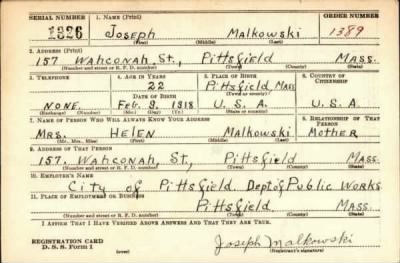 SERIAL NUMBER 1. NAME (Print) ORDER NUMBER
1326 Joseph Malkowski 1389
(First) (Middle) (Last)
2. ADDRESS (Print)
157 Wahconah St., Pittsfield Mass.
(Number and street or R. F. D. number) (Town) (County) (State)
3. TELEPHONE 4. AGE IN YEARS 5. PLACE OF BIRTH 6. COUNTRY OF CITIZENSHIP
22 Pittsfield, Mass
(Town or county)
DATE OF BIRTH
NONE. Feb. 9, 1918 U.S.A. U.S.A.
(Exchange) (Number) (Mo.) (Day) (Yr.) (State or country)
7. NAME OF PERSON WHO WILL ALWAYS KNOW YOUR ADDRESS 8. RELATIONSHIP OF THAT PERSON
Mrs. Helen Malkowski Mother
(Mr., Mrs., Miss) (First) (Middle) (Last)
9. ADDRESS OF THAT PERSON
157. Wahconah, St., Pittsfield Mass
(Number and street or R. F. D. number) (Town) (County) (State)
10. EMPLOYER'S NAME
City of Pittsfield. Dept of Public Works
11. PLACE OF EMPLOYMENT OR BUSINESS
Pittsfield Mass.
(Number and street or R. F. D. number) (Town) (County) (State)
I AFFIRM THAT I HAVE VERIFIED ABOVE ANSWERS AND THAT THEY ARE TRUE.
REGISTRATION CARD
D. S. S. Form 1 (over) Joseph Malkowski
(Registrant's signature)